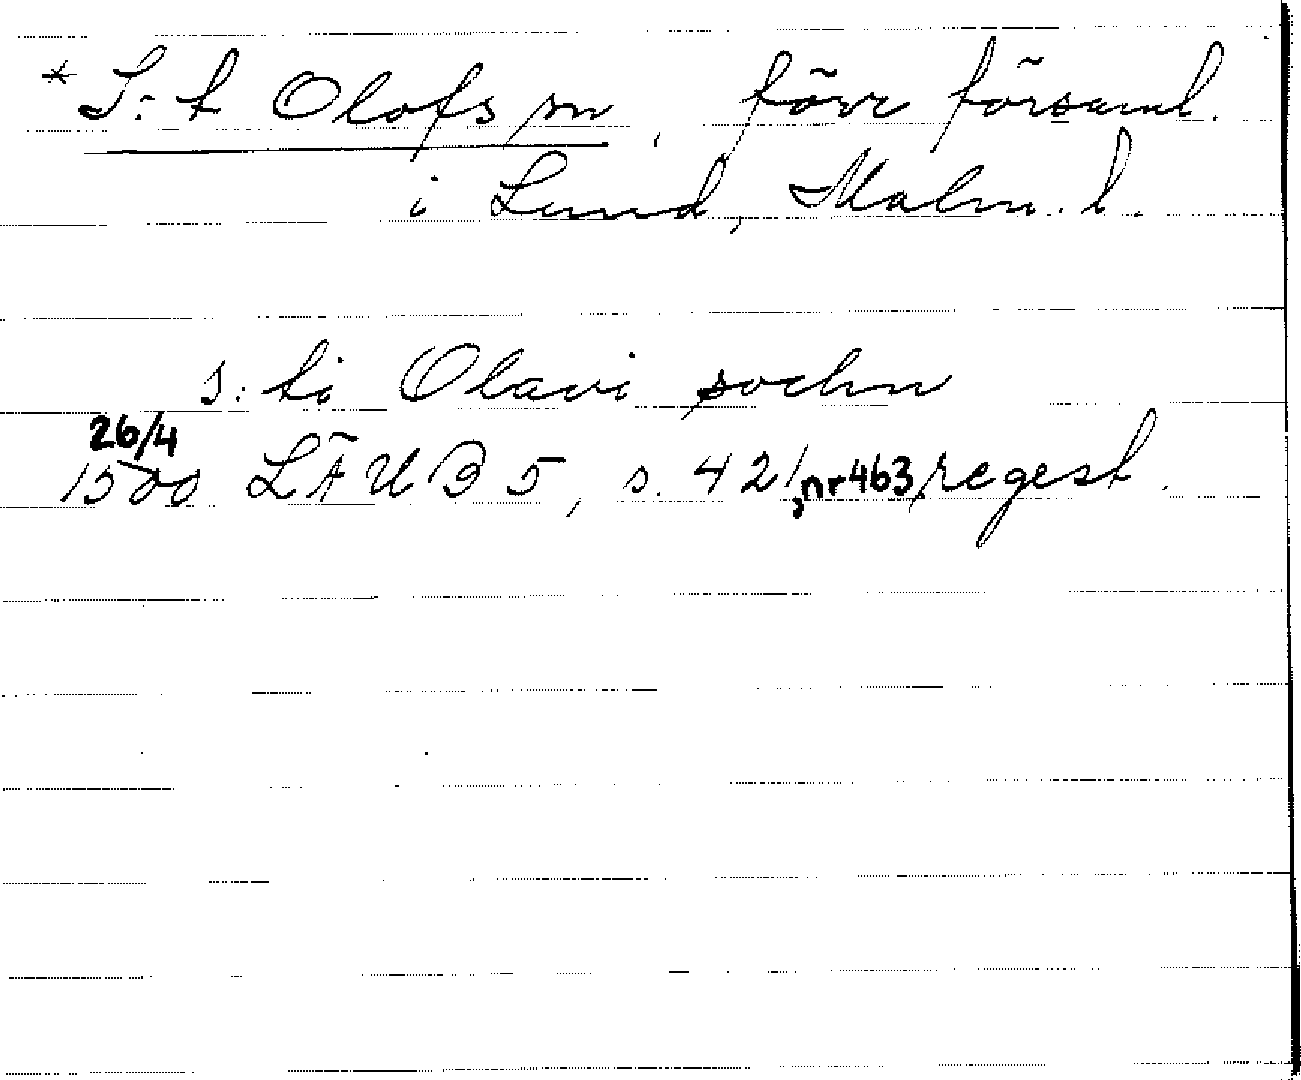 * S:t Olofs sn, förr församl.
i Lund, Malm. l.
s: ti Olavi sochn
26/4
1500 LÄUB 5, s. 421, nr 463, regest.